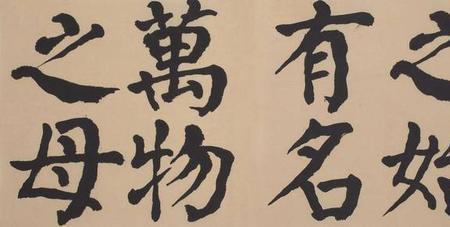 之始
有名
萬物
之母